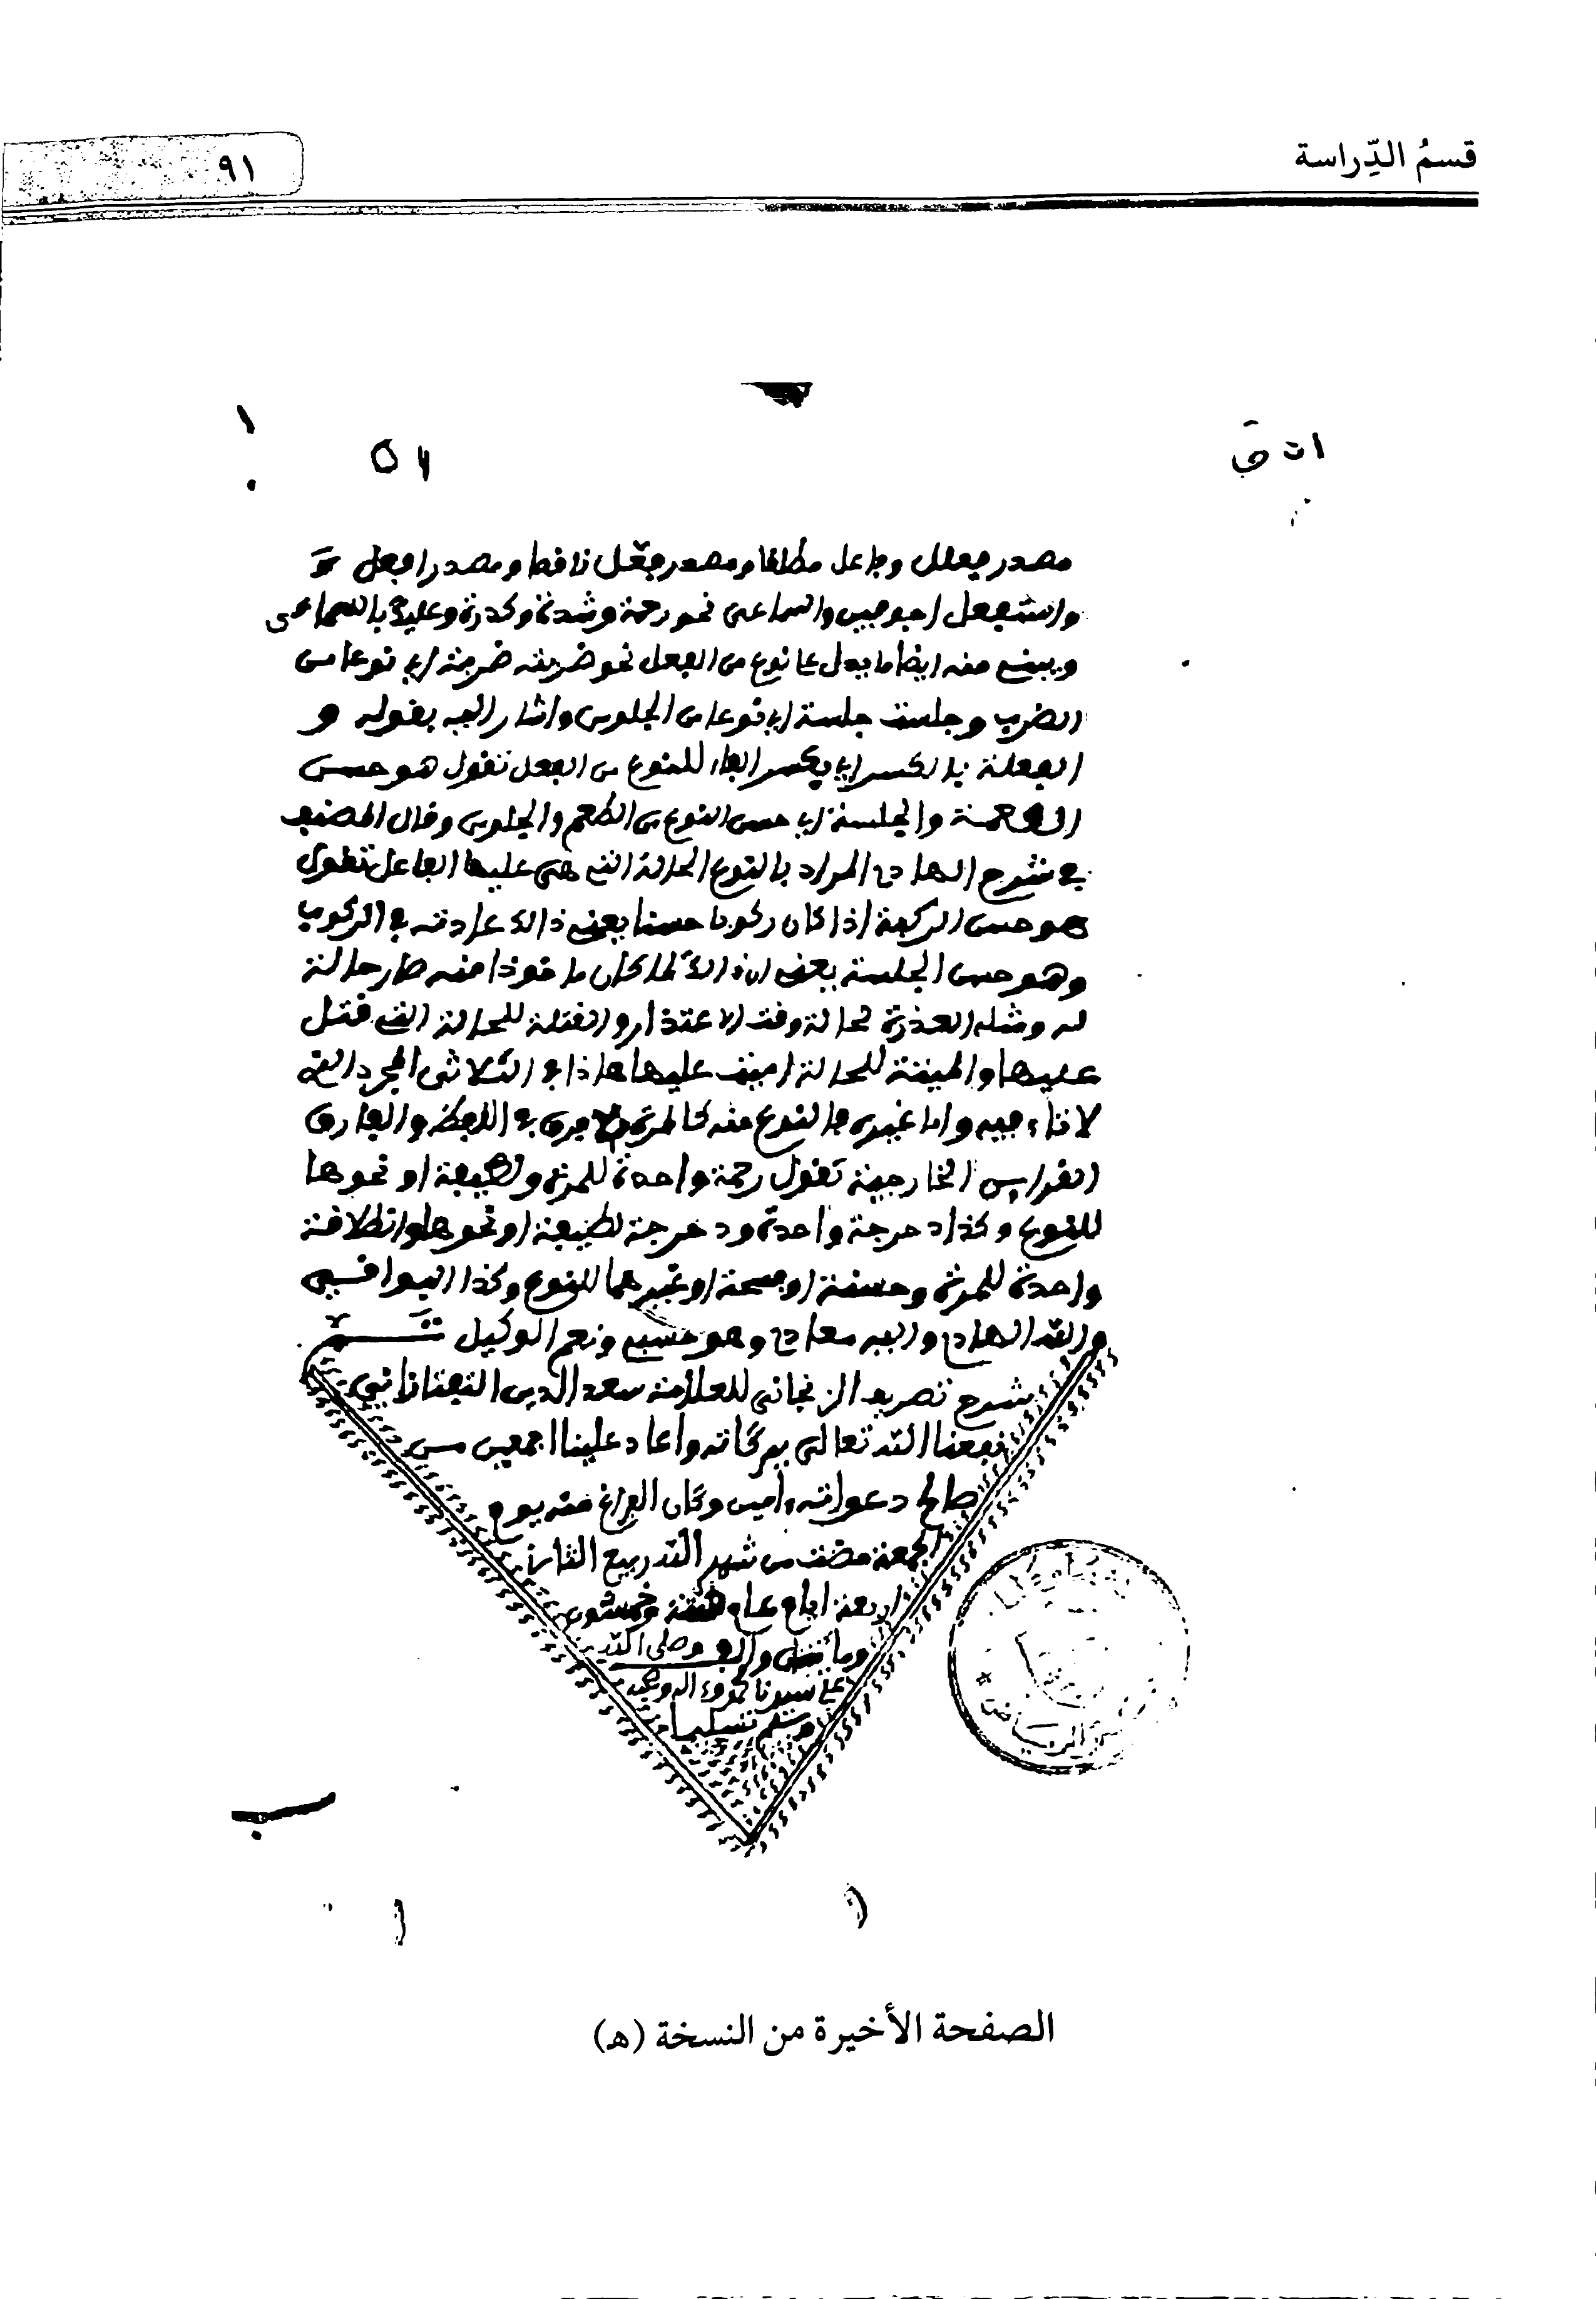 قسمُ الدِّراسة
٩١
مصدر فعلل وفاعل مطلقا ومصدر فعّل ناقصا ومصدر افعل
واستفعل اجوفين والسماعى نحو رحمة ونشدة وكدرة وعليك بالسماعى
ويبنى منه ايضا ما يدل على نوع من الفعل نحو ضربته ضربة اي نوعا من
الضرب وجلست جلسة اي نوعا من الجلوس واشار اليه بقوله و
الفعلة بالكسر اي بكسر الفاء للنوع من الفعل تقول هو حسن
الطعمة والجلسة اي حسن النوع من الطعم والجلوس وقال المصنف
في شرح الهادي المراد بالنوع الحالة التي هى عليها الفاعل تقول
هو حسن الركبة اذا كان ركوبه حسنا يعني ذالك عادته في الركوب
وهو حسن الجلسة يعني ان ذالك لما كان ماخوذا منه صار حالة
له ومثله العذرة لحالة وقت الاعتذار والقتلة للحالة التي قتل
عليها والميتة للحالة اميت عليها هاذا في الثلاثى المجرد الذي
لا تاء فيه واما غيره فالنوع منه كالمرة بلا فرق في اللفظ والفارق
القرايين الخارجية تقول رحمة واحدة للمرة ولطيفة او نحوها
للنوع وكذا دحرجة واحدة ودحرجة لطيفة او نحوها وانطلاقة
واحدة للمرة وحسنة او قبيحة او غيرهما للنوع وكذا البواقي
والله الهادي واليه معادي وهو حسبي ونعم الوكيل تــــمّ
شرح تصريف الزنجانى للعلامة سعد الدين التفتازاني
نفعنا الله تعالى ببركاته واعاد علينا اجمعين من
صالح دعواته ءامين وكان الفراغ منه يوم
الجمعة مضت من شهر الله ربيع الثانى
اربعة ايام عام ستة وخمسون
وما وألف وصلى الله
على سيدنا محمد وءاله وصحبه
وسلم تسليما
الرياض
الصفحة الأخيرة من النسخة (هـ)